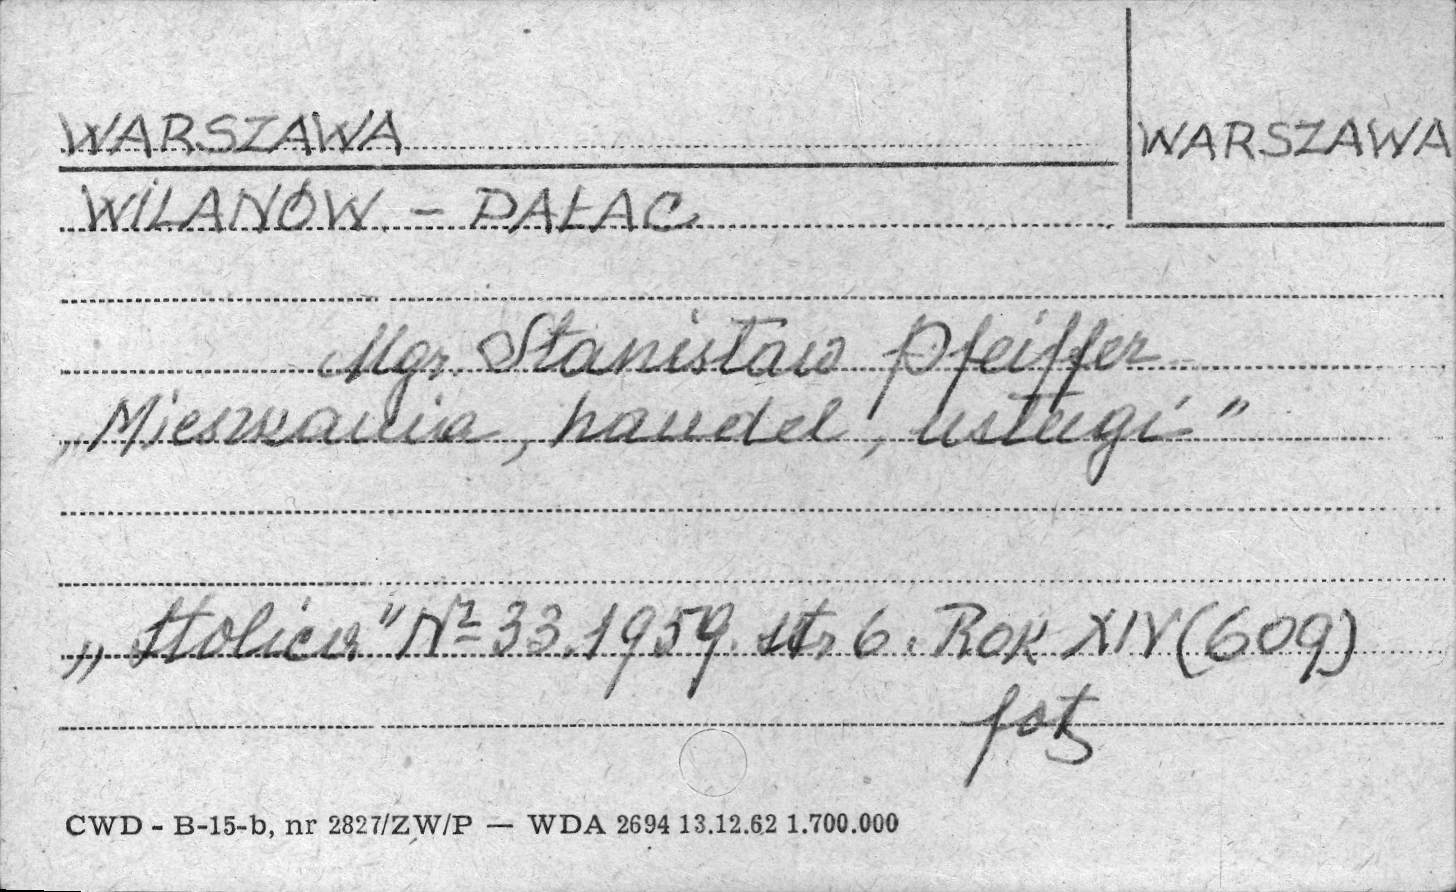 WARSZAWA
WARSZAWA
WILANÓW - PAŁAC
Mgr. Stanisław Pfeiffer
„Mieszkania, handel, usługi"
„Stolica" Nr 33.1959. str 6. Rok XIV (609)
fot
CWD - B-15-b, nr 2827/ZW/P — WDA 2694 13.12.62 1.700.000